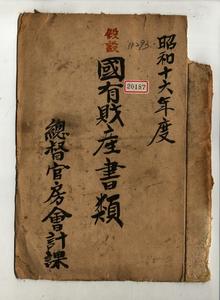 昭和十六年度
假設
國有財産書類
20187
總督官房會計課